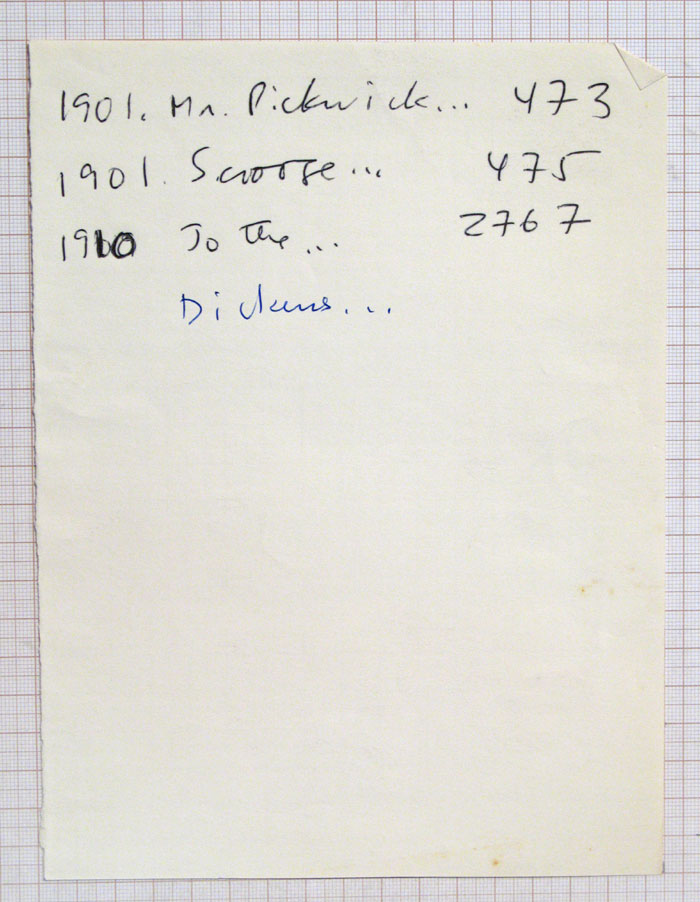 1901. Mr. Pickwick... 473
1901. Scrooge... 475
1910 Jo the... 2767
Dickens...